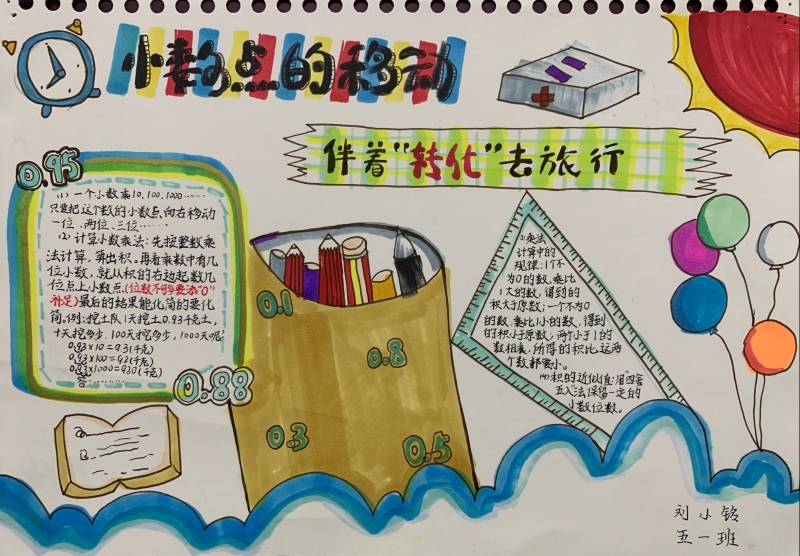 小数点的移动
伴着“转化”去旅行
0.95
(1)一个小数乘10、100、1000……
只要把这个数的小数点向右移动
一位、两位、三位……
(2)计算小数乘法:先按整数乘
法计算,算出积。再看乘数中有几
位小数,就从积的右边起数几
位点上小数点(位数不够要添“0”
补足)最后的结果能化简的要化
简。例:挖土队1天挖土0.93千克土,
十天挖多少,100天挖多少,1000天呢
0.93×10=9.3(千克)
0.93×100=93(千克)
0.93×1000=930(千克)
答:………
0.88
0.1
0.8
0.3
0.5
③乘法
计算中的
规律:1个不
为0的数,乘比
1大的数,得到的
积大于原数;一个不为0
的数,乘比1小的数,得到
的积小于原数;两个小于1的
数相乘,所得的积比这两
个数都要小。
(4)积的近似值:用“四舍
五入”法保留一定的
小数位数。
刘小铭
五一班